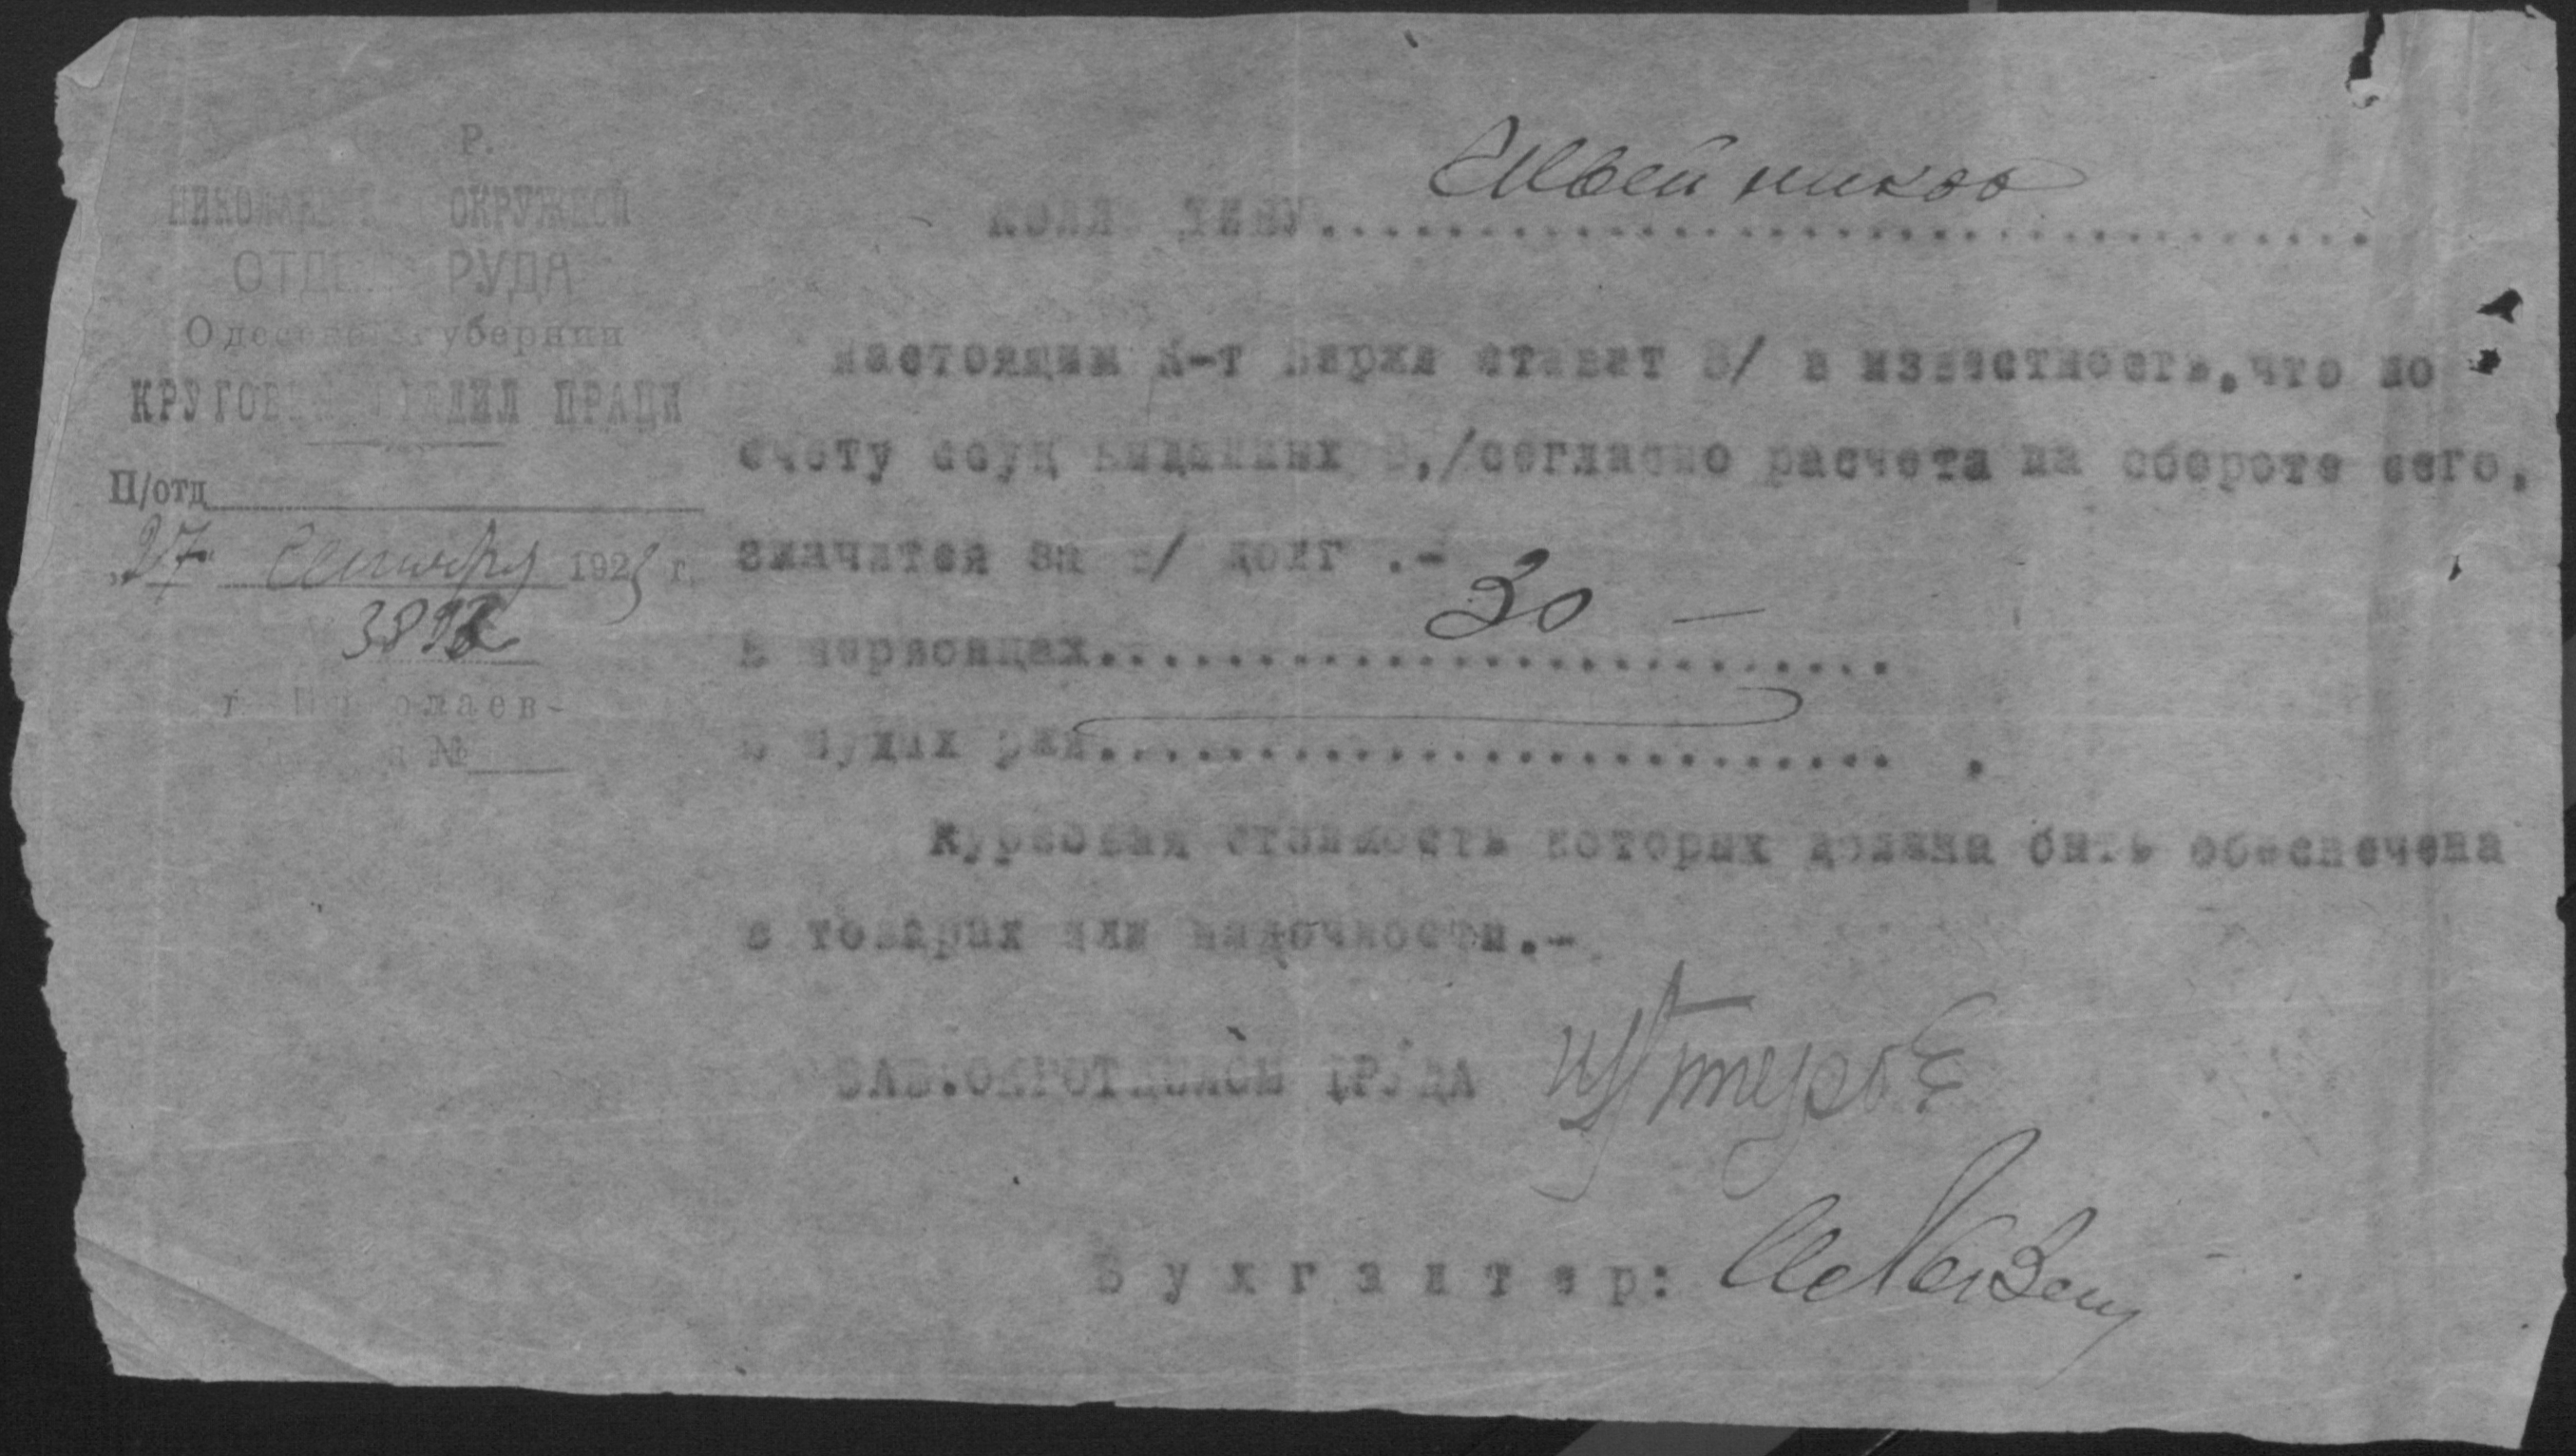 Р.
НИКОЛАЕВ ОКРУЖНОЙ
ОТДЕ РУДА
Одесской губернии
КРУГОВ ДІЛ ПРАЦИ
П/отд
"27" Сентября 1923 г.
г. Николаев-
№
КОЛЛЕКТИВУ. Швейников
Настоящим К-т Биржи ставит В/ в известность, что по
счету ссуд выданных В,/согласно расчета на обороте сего,
значится за в/ долг .-
в червонцах 30 -
в пудах ржи
Курсовая стоимость которых должна быть обеспечена
в товарах или наличности.-
ЗАВ.ОКРОТДЕЛОМ ТРУДА
Бухгалтер: